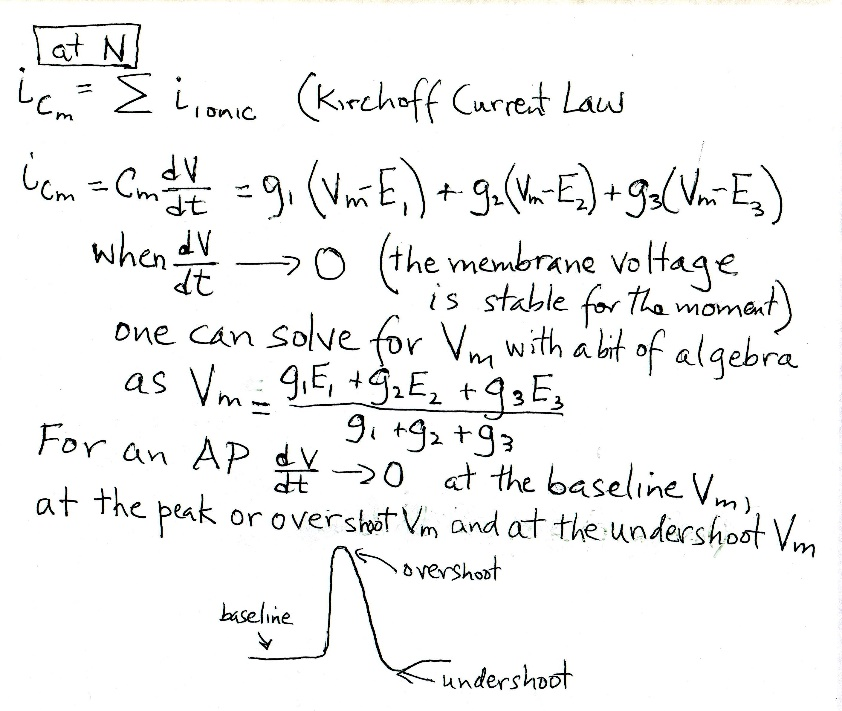 at N
i_Cm = Σ i_ionic (Kirchoff Current Law
i_Cm = Cm dV/dt = g₁(Vm-E₁) + g₂(Vm-E₂) + g₃(Vm-E₃)
when dV/dt → 0 (the membrane voltage
is stable for the moment)
one can solve for Vm with a bit of algebra
as Vm = g₁E₁ + g₂E₂ + g₃E₃
g₁ + g₂ + g₃
For an AP dV/dt → 0 at the baseline Vm,
at the peak or overshoot Vm and at the undershoot Vm
overshoot
baseline
undershoot